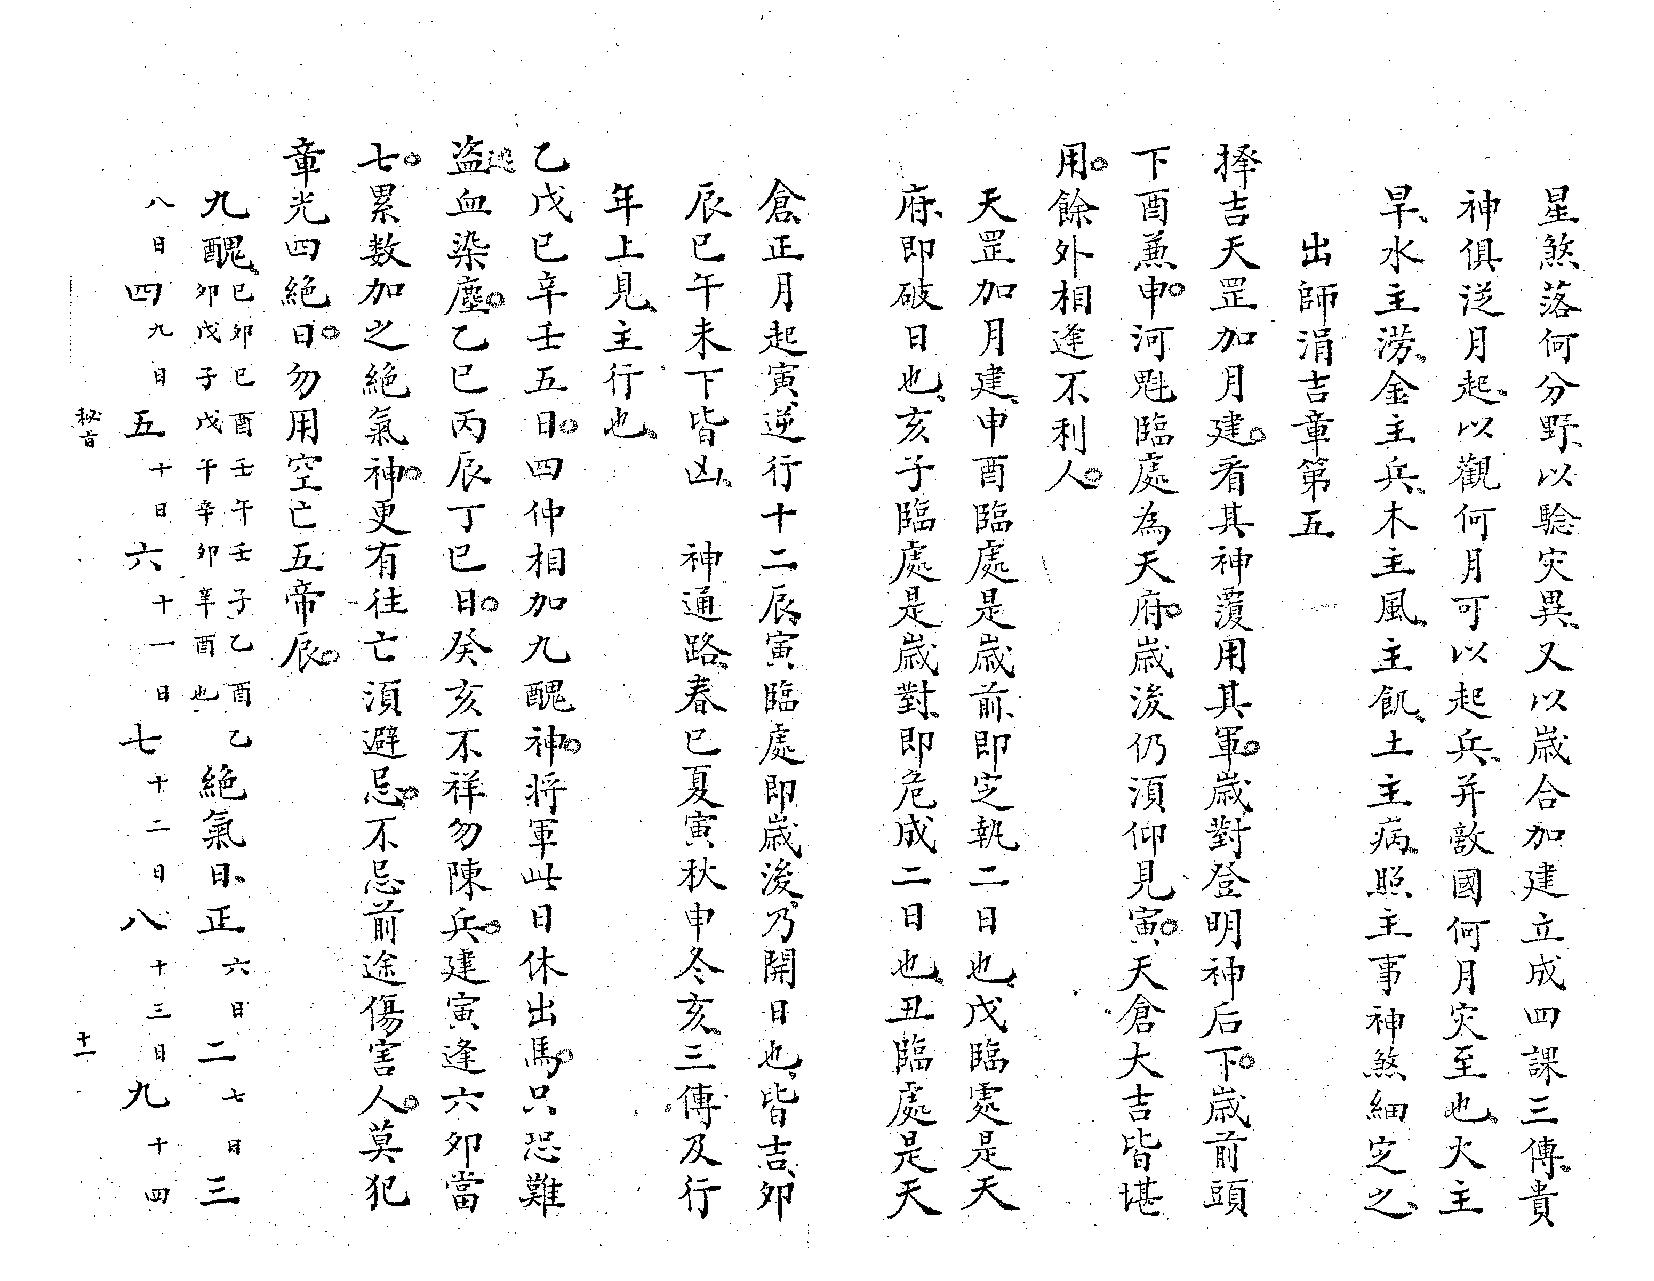 星煞落何分野、以驗灾異、又以歲合加建立成四課三傳、貴
神俱從月起、以觀何月可以起兵、并敵國何月灾至也、火主
旱、水主澇、金主兵、木主風、主飢、土主病、照主事神煞細㝎之、
出師涓吉章第五
擇吉天罡加月建。看其神覆用其軍。歲對登明神后下。歲前頭
下酉兼申。河魁臨處為天府。歲後仍須仰見寅。天倉大吉皆堪
用。餘外相逢不利人。
天罡加月建、申酉臨處是歲前、即㝎執二日也、戌臨處是天
府、即破日也、亥子臨處是歲對、即危成二日也、丑臨處是天
倉、正月起寅、逆行十二辰、寅臨處即歲後、乃開日也、皆吉、卯
辰巳午未下皆凶、　神通路、春巳夏寅秋申冬亥、三傳及行
年上見、主行也、
乙戊己辛壬五日。四仲相加九醜神。將軍此日休出馬。只恐難
逃
盗血染塵。乙巳丙辰丁巳日。癸亥不祥勿陳兵。建寅逢六卯當
七。累数加之絕氣神。更有往亡須避忌。不忌前途傷害人。莫犯
章光四絕日。勿用空亡五帝辰。
九醜、己卯己酉壬午壬子乙酉乙
卯戊子戊午辛卯辛酉也　絕氣日、正六日二七日三
八日四九日五十日六十一日七十二日八十三日九十四
秘吉
十一